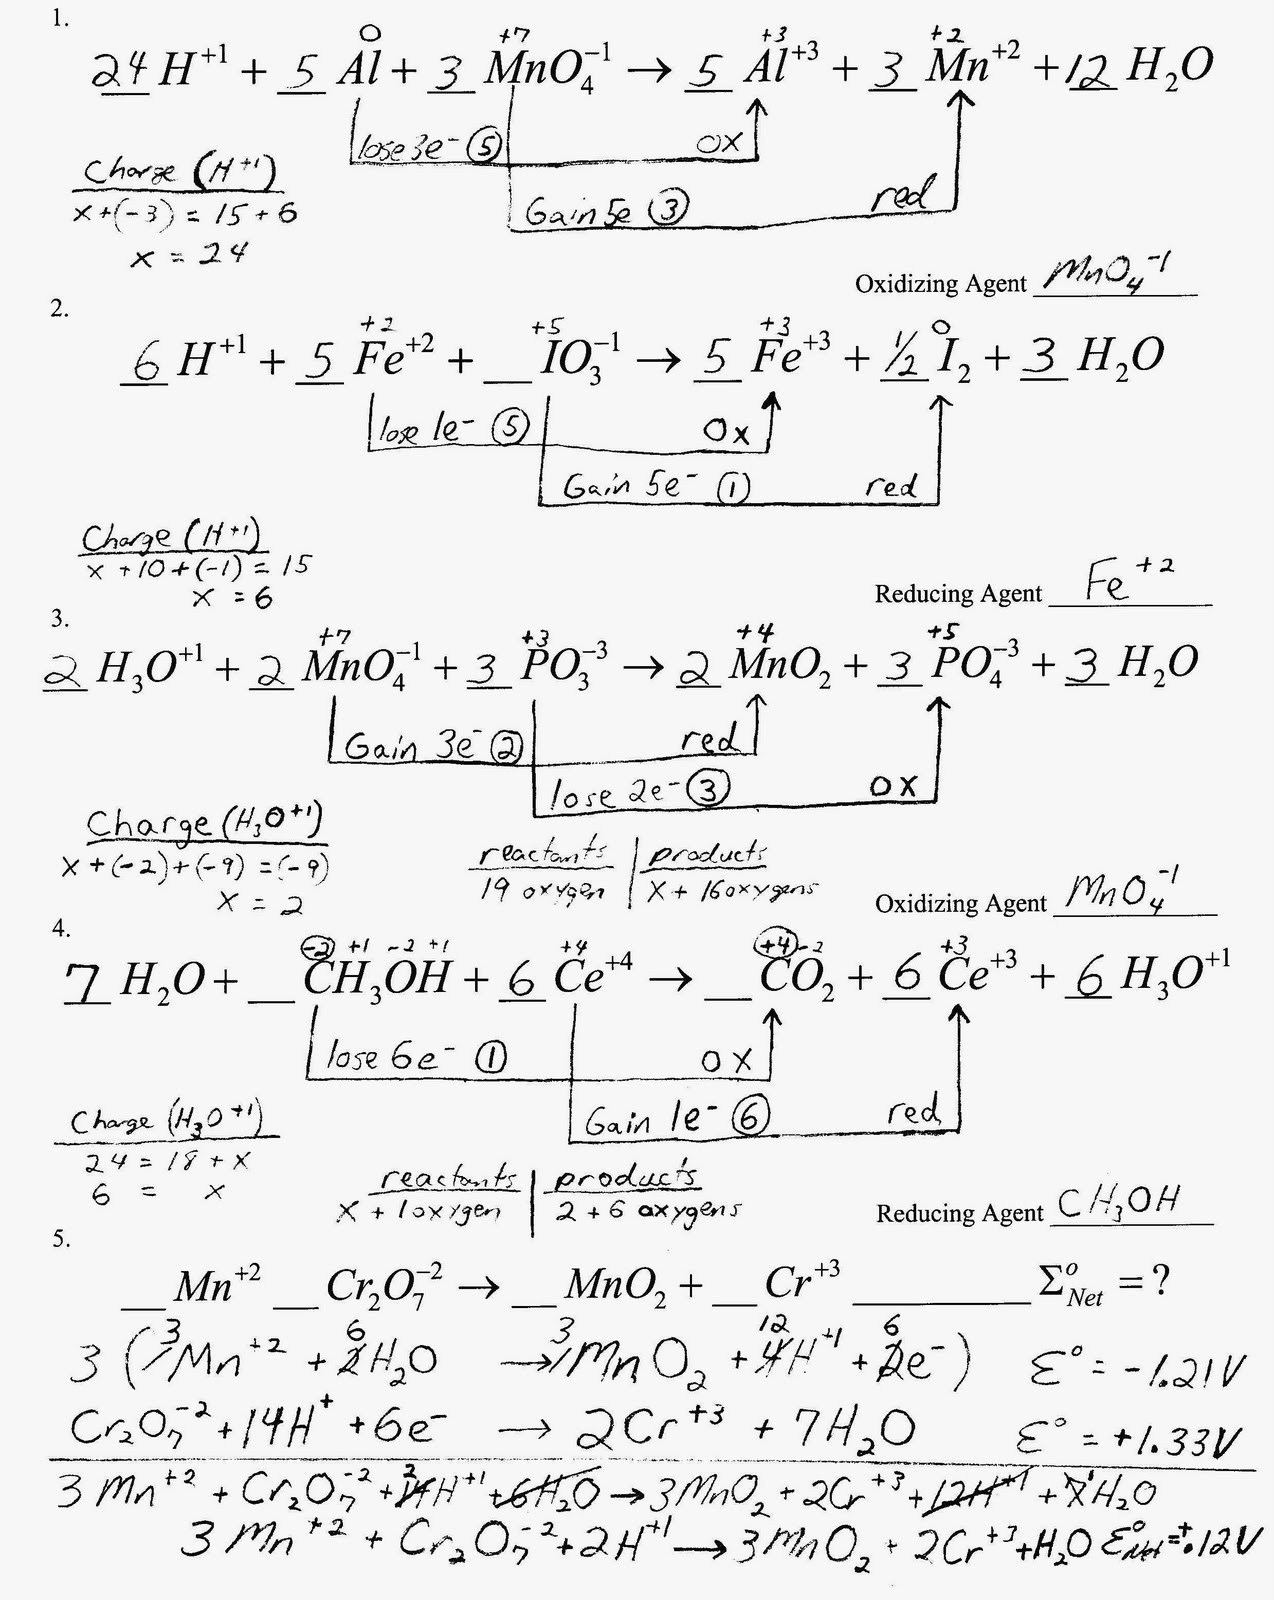 1.
0 +7 +3 +2
24 H⁺¹ + 5 Al + 3 MnO₄⁻¹ → 5 Al⁺³ + 3 Mn⁺² + 12 H₂O
lose 3e⁻ ⑤ ox
Charge (H⁺¹)
x + (-3) = 15 + 6
Gain 5e ③ red
x = 24
Oxidizing Agent MnO₄⁻¹
2.
+2 +5 +3 0
6 H⁺¹ + 5 Fe⁺² + __ IO₃⁻¹ → 5 Fe⁺³ + ½ I₂ + 3 H₂O
lose 1e⁻ ⑤ Ox
Gain 5e⁻ ① red
Charge (H⁺¹)
x + 10 + (-1) = 15
x = 6
Reducing Agent Fe⁺²
3.
+7 +3 +4 +5
2 H₃O⁺¹ + 2 MnO₄⁻¹ + 3 PO₃⁻³ → 2 MnO₂ + 3 PO₄⁻³ + 3 H₂O
Gain 3e⁻ ② red
lose 2e⁻ ③ OX
Charge (H₃O⁺¹)
x + (-2) + (-9) = (-9)
x = 2
reactants | products
19 oxygen | X + 16 oxygens
Oxidizing Agent MnO₄⁻¹
4.
-2 +1 -2 +1 +4 +4 -2 +3
7 H₂O + __ CH₃OH + 6 Ce⁺⁴ → __ CO₂ + 6 Ce⁺³ + 6 H₃O⁺¹
lose 6e⁻ ① OX
Gain 1e⁻ ⑥ red
Charge (H₃O⁺¹)
24 = 18 + x
6 = x
reactants | products
x + 1 oxygen | 2 + 6 oxygens
Reducing Agent CH₃OH
5.
__ Mn⁺² __ Cr₂O₇⁻² → __ MnO₂ + __ Cr⁺³ ________ Σ°Net = ?
3 6 3 12 6
3 (1Mn⁺² + 2H₂O → 1MnO₂ + 4H⁺¹ + 2e⁻) Ɛ° = -1.21V
Cr₂O₇⁻² + 14H⁺ + 6e⁻ → 2Cr⁺³ + 7H₂O Ɛ° = +1.33V
3 Mn⁺² + Cr₂O₇⁻² + 2 14H⁺¹ + 6H₂O → 3MnO₂ + 2Cr⁺³ + 12H⁺¹ + 7 1 H₂O
3 Mn⁺² + Cr₂O₇⁻² + 2H⁺¹ → 3MnO₂ + 2Cr⁺³ + H₂O Ɛ°Net = +.12V